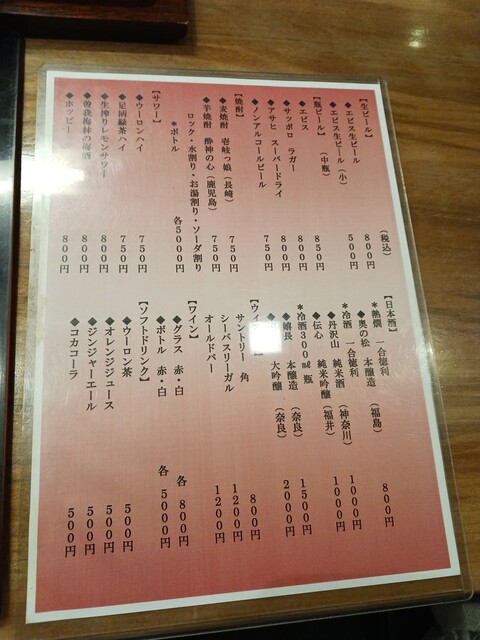 【生ビール】 (税込)
◆エビス生ビール 800円
◆エビス生ビール（小） 500円
【瓶ビール】（中瓶）
◆エビス 850円
◆サッポロ ラガー 800円
◆アサヒ スーパードライ 800円
◆ノンアルコールビール 750円
【焼酎】
◆麦焼酎 壱岐っ娘（長崎） 750円
◆芋焼酎 酔神の心（鹿児島） 750円
ロック・水割り・お湯割り・ソーダ割り
*ボトル 各5000円
【サワー】
◆ウーロンハイ 750円
◆足柄緑茶ハイ 750円
◆生搾りレモンサワー 800円
◆曽我梅林の梅酒 800円
◆ホッピー 800円
【日本酒】
*熱燗 一合徳利
◆奥の松 本醸造（福島） 800円
*冷酒 一合徳利
◆丹沢山 純米酒（神奈川） 1000円
◆伝心 純米吟醸（福井） 1000円
*冷酒300㎖瓶
◆嬉長 本醸造（奈良） 1500円
◆ 大吟醸（奈良） 2000円
【ウィ
サントリー 角 800円
シーバスリーガル 1200円
オールドパー 1200円
【ワイン】
◆グラス 赤・白 各800円
◆ボトル 赤・白 各5000円
【ソフトドリンク】
◆ウーロン茶 500円
◆オレンジジュース 500円
◆ジンジャーエール 500円
◆コカコーラ 500円